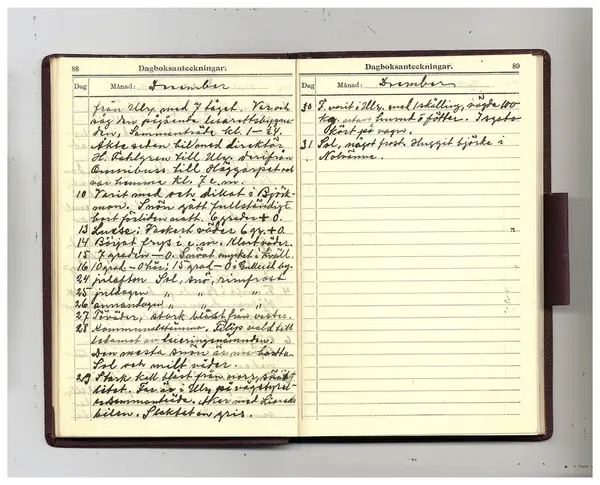 88
Dagboksanteckningar.
Dag Månad: December
från Ulr. med 7 tåget. Var och
såg den pågående lasarettsbyggna-
den, Sammanträde kl. 1–24.
Åkte sedan bil med direktör
H. Fahlgren till Ulr. därifrån
Omnibuss till Häggarpet och
var hemma kl. 7 e.m.
10 Varit med och dikat i Björk-
mon. Snön gått fullständigt
bort förliden natt. 6 grader + 0.
13 Lucia: Vackert väder 6 gr. + 0.
14 Börjat frys i e.m. Klart väder.
15 7 graden – 0. Snöat mycket i kväll.
16 10 grad – 0 här; 15 grad – 0 i
24 julafton Sol, snö, rimfrost
25 juldagen " " "
26 annandagen " " "
27 Töväder, stark blåst från väster.
28 Kommunalstämma. Filip vald till
ledamot av taxeringsnämnden.
Den mesta snön är nu borta.
Sol och milt väder.
29 Stark kall blåst från norr, snöat
litet. Far är i Ulr. på vägstyrel-
sesammanträde. Åker med
bilen. Slaktat en gris.
89
Dagboksanteckningar.
Dag Månad: December
30 F. varit i Ulr. med 1 skälling, vägde 100
kg. utan huvud o fötter. Isgata
Kört på vagn.
31 Sol, något frost. Huggit björke i